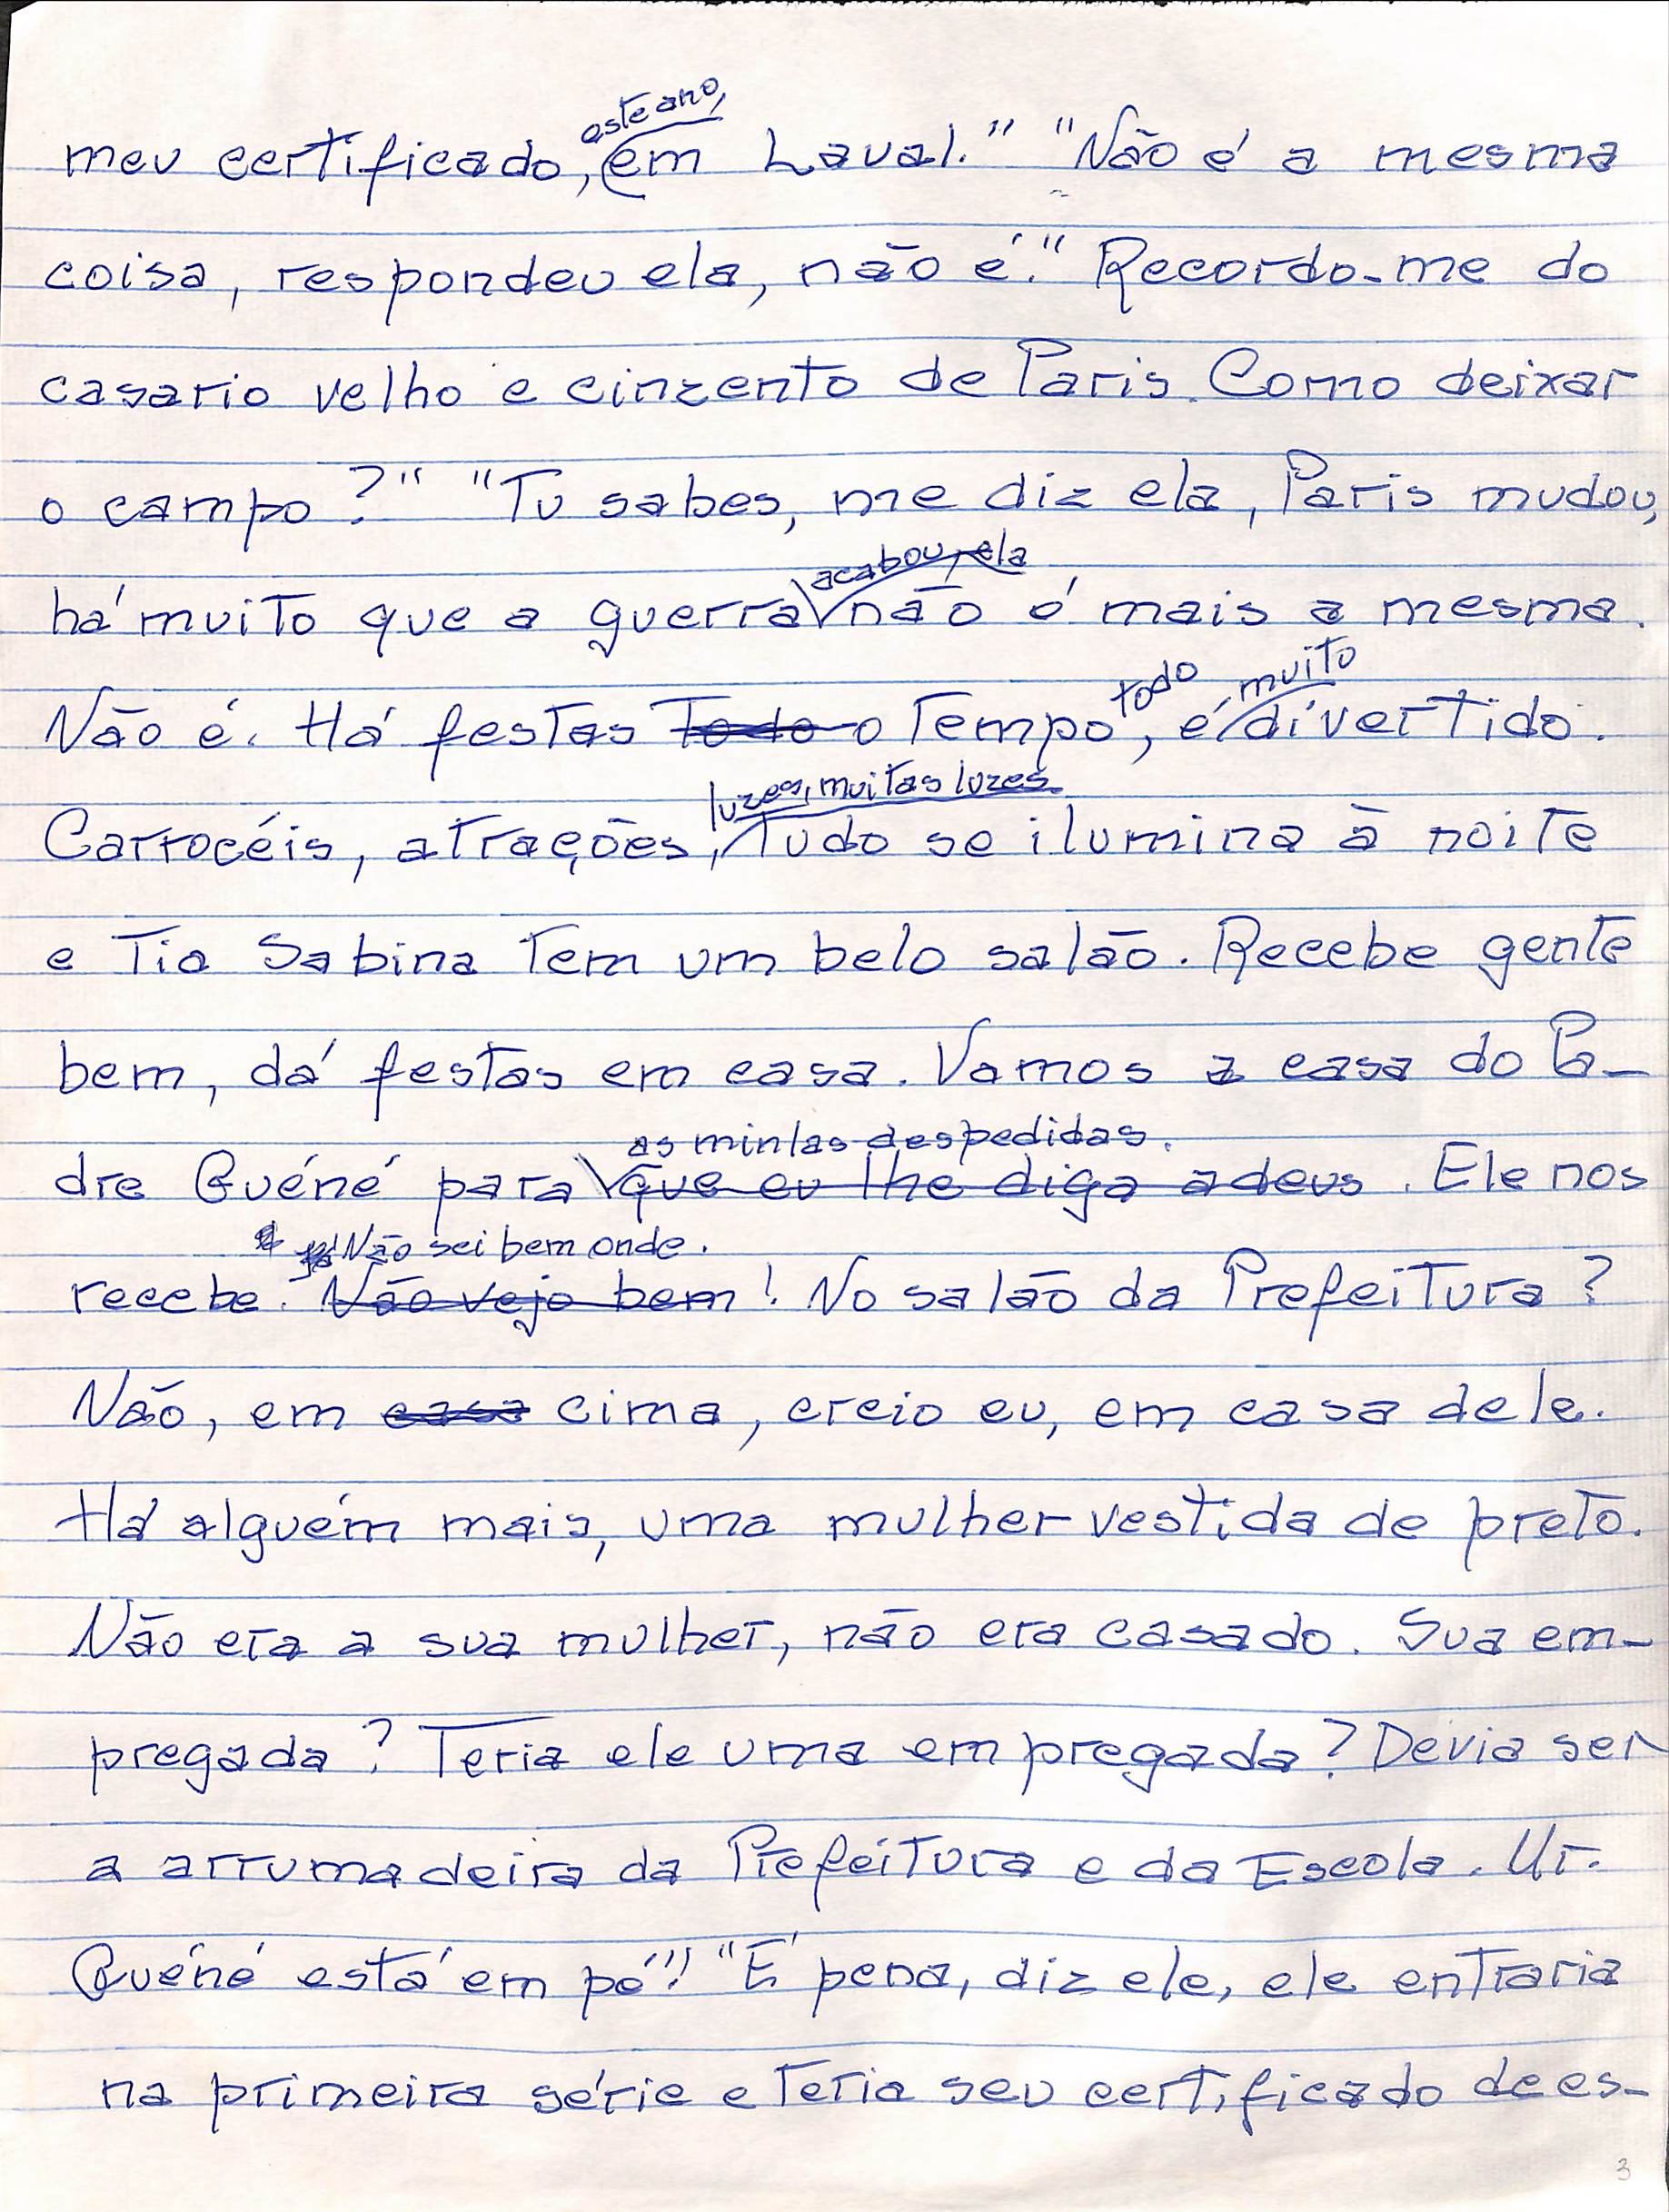 este ano,
meu certificado, em Laval." "Não é a mesma
coisa, respondeu ela, não é." Recordo-me do
casario velho e cinzento de Paris. Como deixar
o campo?" "Tu sabes, me diz ela, Paris mudou,
acabou, ela
há muito que a guerra não é mais a mesma.
todo muito
Não é. Há festas todo o tempo, é divertido.
luzes, muitas luzes
Carrocéis, atrações, tudo se ilumina à noite
e Tia Sabina tem um belo salão. Recebe gente
bem, dá festas em casa. Vamos a casa do Pa-
as minhas despedidas.
dre Quéné para que eu lhe diga adeus. Ele nos
Não sei bem onde.
recebe. Não vejo bem! No salão da Prefeitura?
Não, em casa cima, creio eu, em casa dele.
Há alguém mais, uma mulher vestida de preto.
Não era a sua mulher, não era casado. Sua em-
pregada? Teria ele uma empregada? Devia ser
a arrumadeira da Prefeitura e da Escola. Mr.
Quéné está em pé"! "É pena, diz ele, ele entraria
na primeira série e teria seu certificado de es-
3